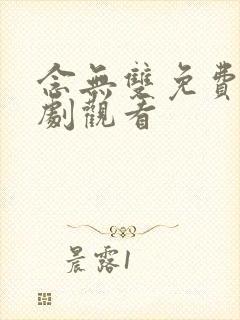 念無雙免費
劇觀看
晨露1